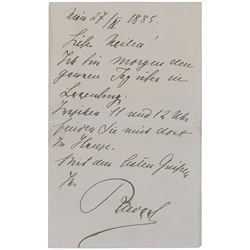 Wien 27/X 1885.
Lieber
Ich bin morgen den
ganzen Tag über in
Laxenburg.
Zwischen 11 und 12 Uhr
finden Sie mich dort
zu Hause.
Mit den besten Grüßen
Ihr